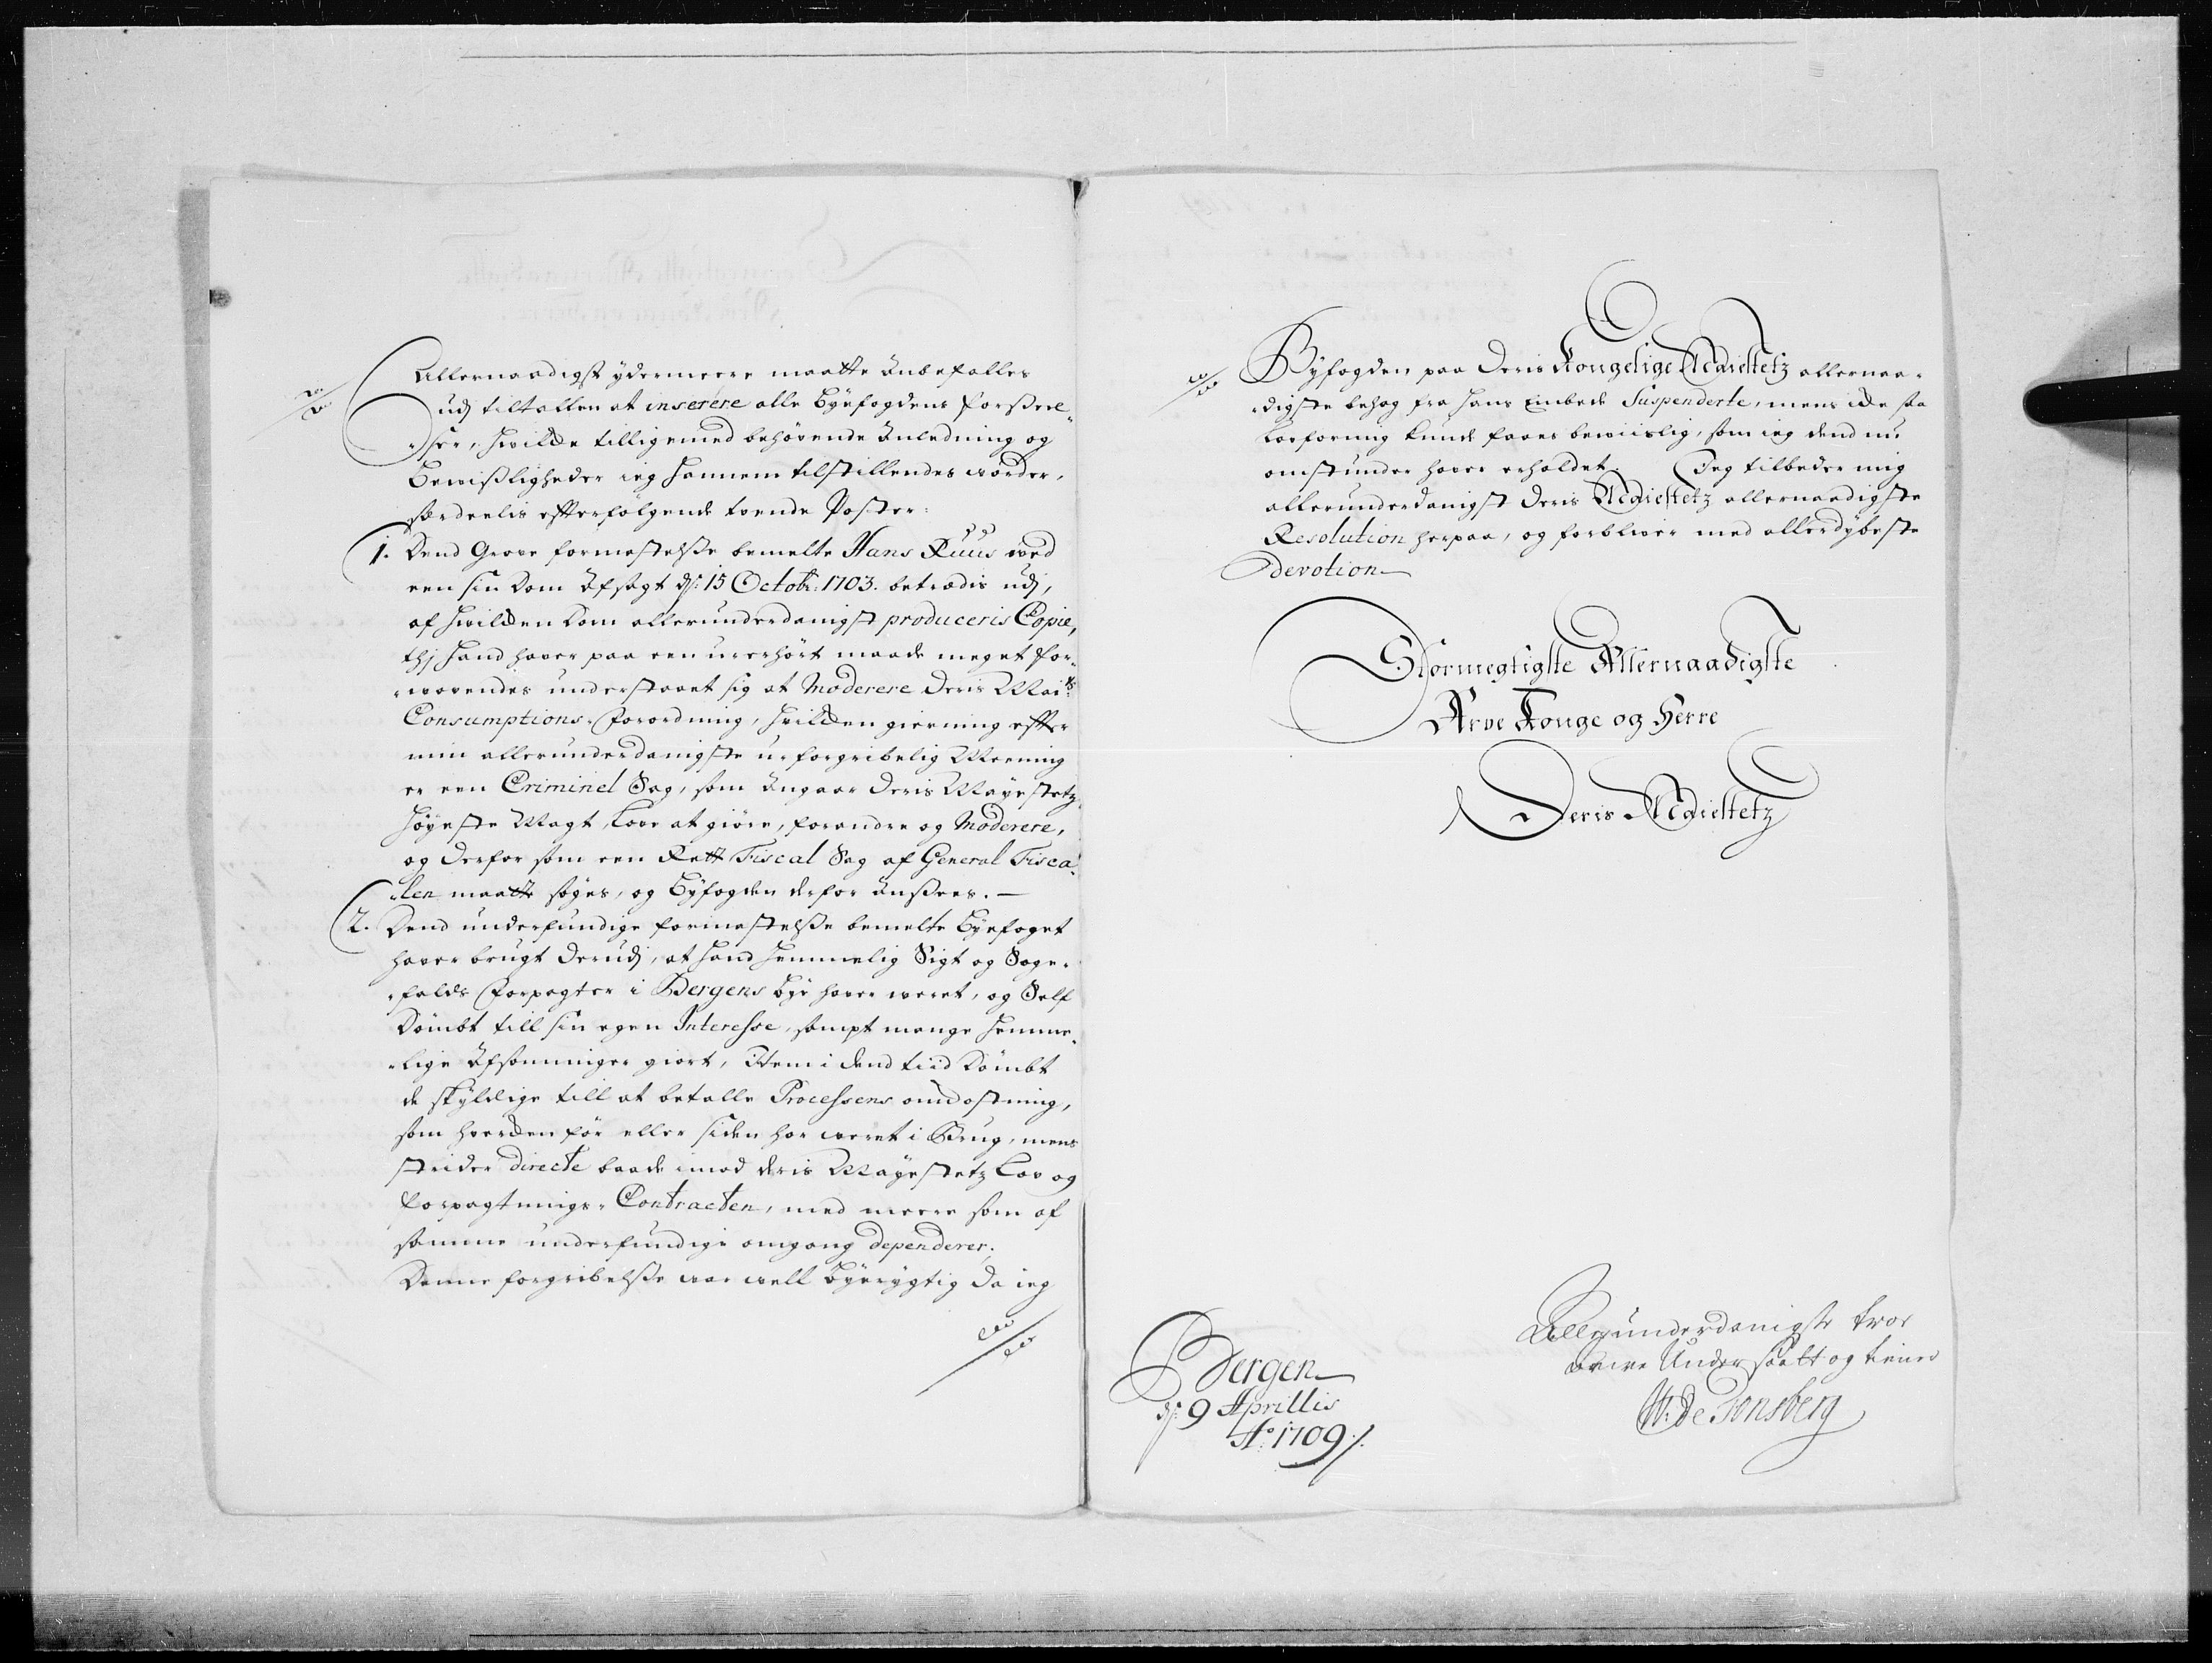 Allernaadigst ydermeere maatte anbefalles
udj tiltallen at inserere alle Byefogdens forseel-
-ser, hvilcke tilligemed behøvende Anledning og
Bevislighæder ieg hannem tilstillendes worder,
særdeelis efterfølgende tvende Poster:
1. Dend Grove formastelsse bemelte Hans Ruus ved
een sin Dom Afsagt d: 15 Octobr: 1703. betrædis udj,
af hvilcken Dom allerunderdanigst produceris Copie,
thj hand haver paa een uerhørt maade meget for-
-wovendes understaaet sig at Moderere Deris Maits
Consumptions-Forordning, hvilcken gierning effter
min allerunderdanigste u-forgribelig Meening
er een Criminel Sag, som Angaar Deris Mayestetz
høyeste Magt, Love at giøre, forandre og Moderere,
og derfor som een Rett Fiscal Sag af General Fisca-
-len maatte søges, og Byfogden derfor ansees.
2. Dend underfundige formastelsse bemelte Byefoget
haver brugt derudj, at hand hemmelig Sigt og Sage-
-falds Forpagter i Bergens bye haver weret, og Self
Dømbt till sin egen Interesse, sampt mange hemme-
-lige Afsoninger giort, Item i dend tiid Dømbt
de skyldige till at betalle Processens omkostning,
som hverken før eller siden har weret i Brug, mens
strider directe baade imod deris Mayestetz Lov og
forpagtnings-Contracten, med meere som af
samme underfundige omgang dependerer;
Denne forgribelsse war well byerygtig da ieg
Byfogden paa Deris Kongelige Majestetz allernaa-
-digste behag fra hans Embede Suspenderte, mens icke saa
Lovformig kunde faaes beviislig, som ieg dend nu
omstunder haver erholdet. Jeg tilbeder mig
allerunderdanigst Deris Majestetz allernaadigste
Resolution herpaa, og forbliver med allerdybeste
devotion
Stormegtigste Allernaadigste
Arve Konge og Herre
Deris Majestetz
Allerunderdanigste troe
Arve Undersaatt og tiener
W: De Tonsberg
Bergen
d: 9 Aprillis
Ao: 1709 /.